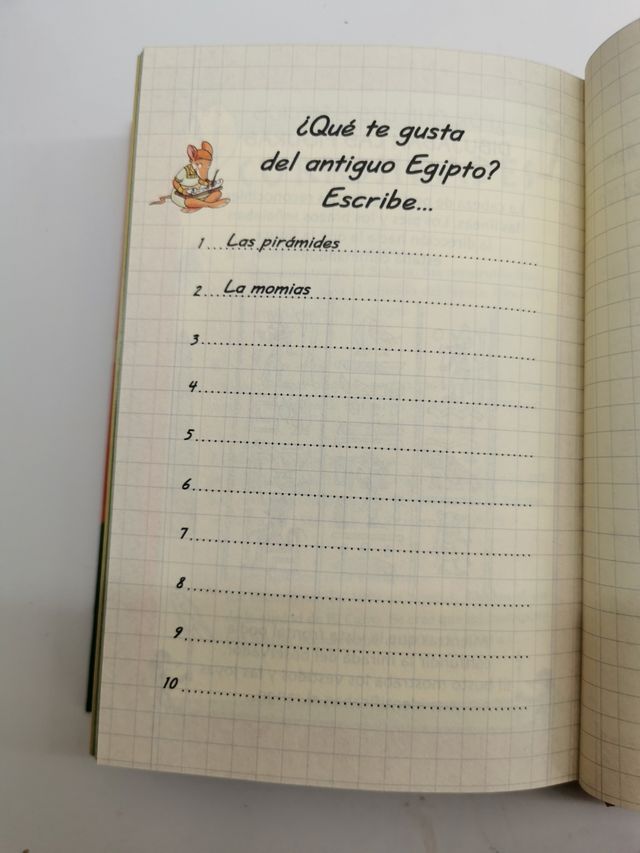 ¿Qué te gusta
del antiguo Egipto?
Escribe...
1 Las pirámides
2 La momias
3
4
5
6
7
8
9
10